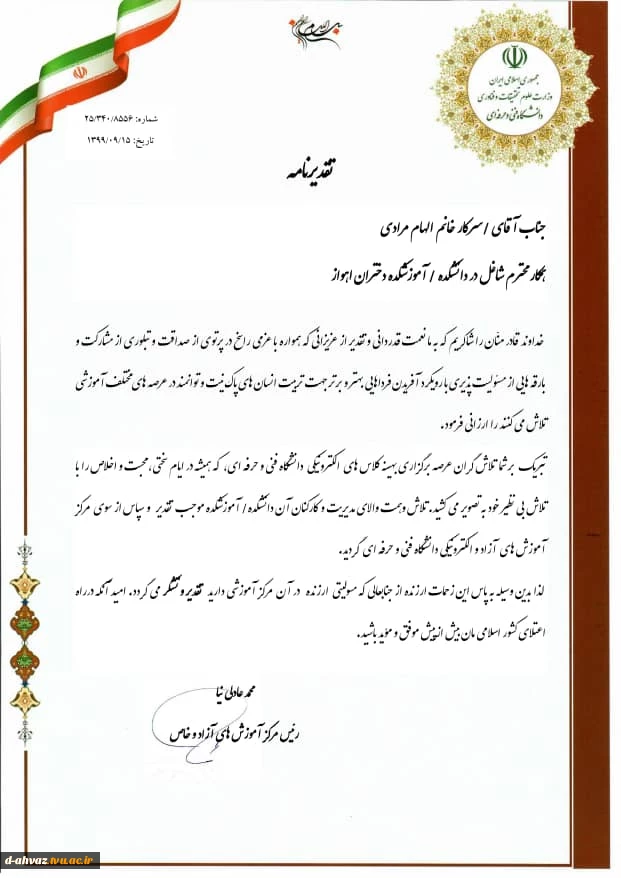 جمهوری اسلامی ایران
وزارت علوم، تحقیقات و فناوری
دانشگاه فنی و حرفه ای
شماره: ۲۵/۳۴۰/۸۵۵۶
تاریخ: ۱۳۹۹/۰۹/۱۵
تقدیرنامه
جناب آقای /سرکار خانم الهام مرادی
همکار محترم شاغل در دانشکده / آموزشکده دختران اهواز
خداوند قادر منّان را شاکریم که به ما نعمت قدردانی و تقدیر از عزیزانی که همواره با عزمی راسخ در پرتوی از صداقت و تبلوری از مشارکت و
بارقه هایی از مسئولیت پذیری با رویکرد آفریدن فرداهایی بهتر و برتر جهت تربیت انسان های پاک نیت و توانمند در عرصه های مختلف آموزشی
تلاش می کنند را ارزانی فرمود.
تبریک بر شما تلاش گران عرصه برگزاری بهینه کلاس های الکترونیکی دانشگاه فنی و حرفه ای، که همیشه در ایام سختی، محبت و اخلاص را با
تلاش بی نظیر خود به تصویر می کشید. تلاش و همت والای مدیریت و کارکنان آن دانشکده/آموزشکده موجب تقدیر و سپاس از سوی مرکز
آموزش های آزاد و الکترونیکی دانشگاه فنی و حرفه ای گردید.
لذا بدین وسیله به پاس این زحمات ارزنده از جنابعالی که مسولیتی ارزنده در آن مرکز آموزشی دارید تقدیر و تشکر می گردد. امید آنکه در راه
اعتلای کشور اسلامی مان بیش از پیش موفق و مؤید باشید.
محمد عادلی نیا
رئیس مرکز آموزش های آزاد و خاص
d-ahvaz.tvu.ac.ir